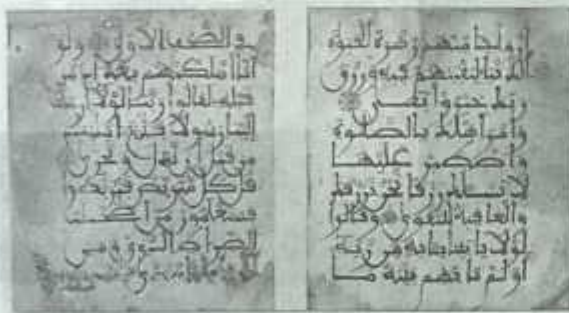 ازوجا منهم زهرة الحيوة
الدنيا لنفتنهم فيه ورزق
ربك خير وابقى
وامر اهلك بالصلوة
واصطبر عليها
لا نسلك رزقا نحن نرزقك
والعاقبة للتقوى وقالوا
لولا ياتينا باية من ربه
اولم تاتهم بينة ما
في الصحف الاولى ولو
انا اهلكنهم بعذاب من
قبله لقالوا ربنا لولا ارسلت
الينا رسولا فنتبع ايتك
من قبل ان نذل ونخزى
قل كل متربص فتربصوا
فستعلمون من اصحب
الصرط السوي ومن